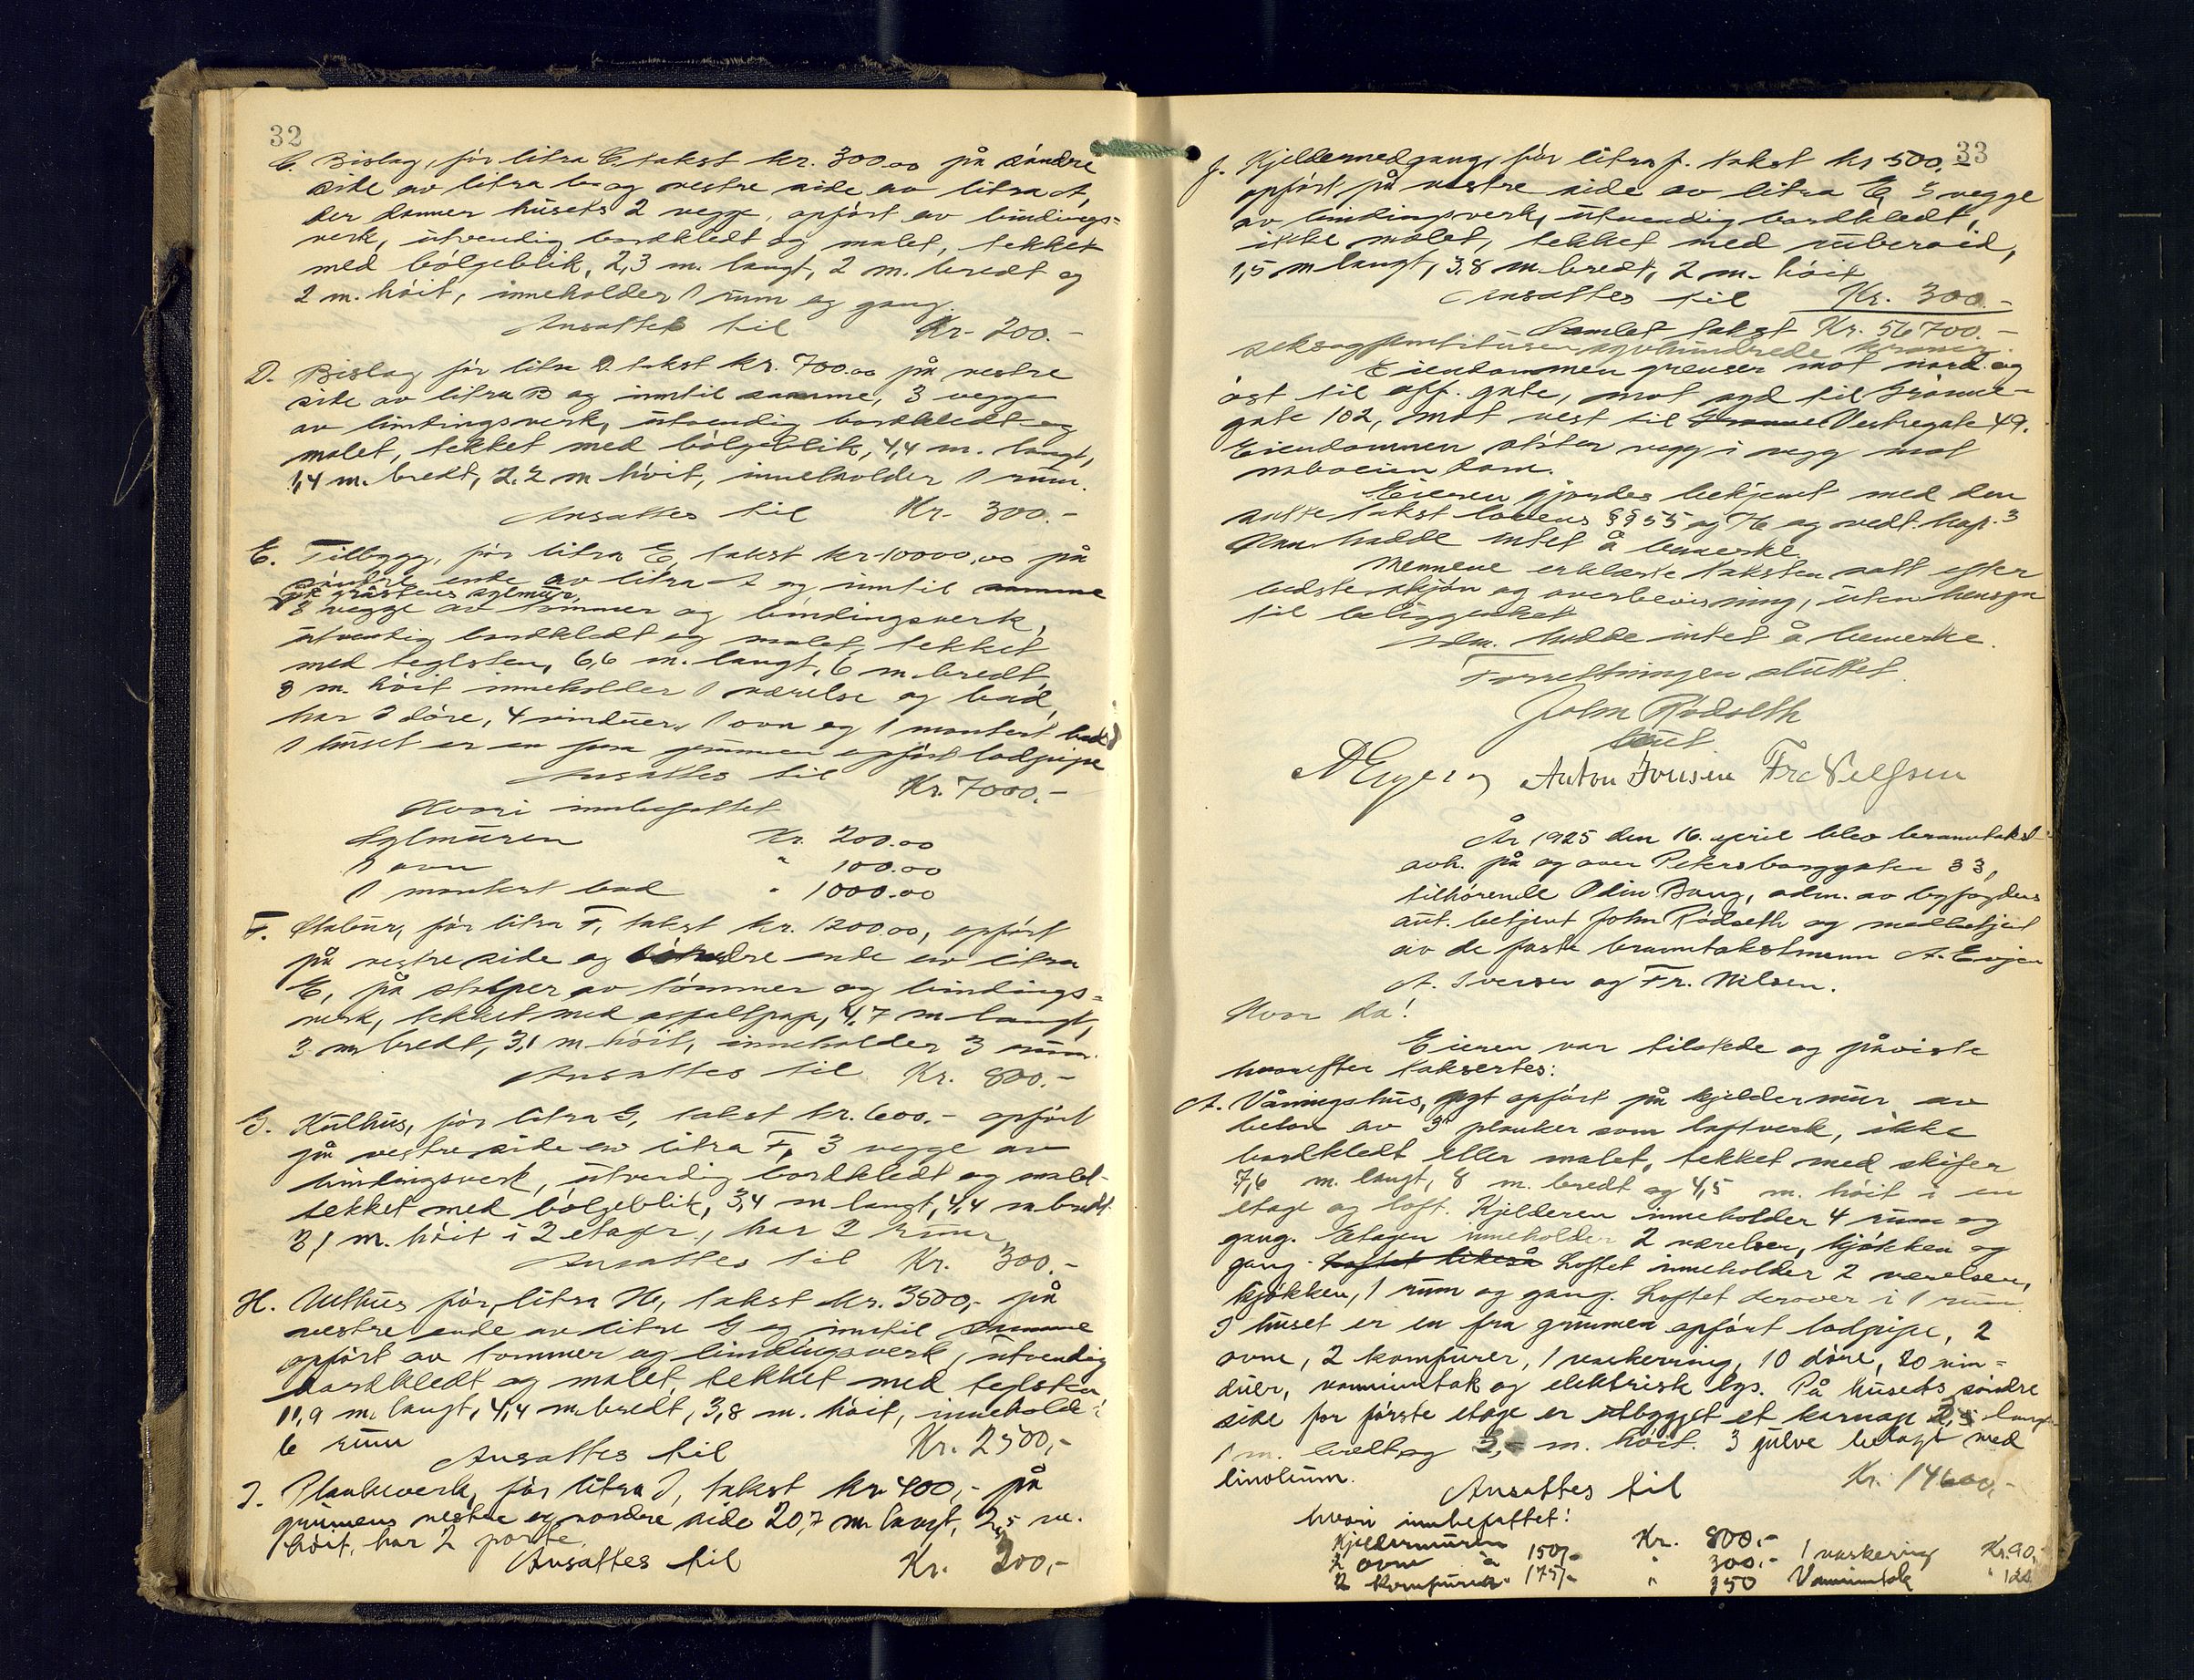 32
C. Bislag, før litra C. takst kr. 300.00 på søndre
side av litra B og vestre side av litra A,
der danner husets 2 vegge, opført av bindings=
verk, utvendig bordkledt og malet, tekket
med bølgeblik, 2,3 m. langt, 2 m. bredt og
2 m. høit, inneholder 1 rum og gang.
Ansattes til Kr. 200.-
D. Bislag før litra D takst kr. 700.00 på vestre
side av litra B og inntil samme, 3 vegge
av bindingsverk, utvendig bordkledt og
malet, tekket med bølgeblik, 4,4 m. langt,
1,4 m. bredt, 2,2 m høit, inneholder 1 rum.
Ansattes til Kr. 300.-
E. Tilbygg, før litra E, takst kr 10000,00 på
søndre ende av litra A og inntil samme
på gråstens sylmur,
3 vegge av tømmer og bindingsverk,
utvendig bordkledt og malet, tekket
med teglsten, 6,6 m. langt, 6 m bredt,
3 m. høit inneholder 1 værelse og bad,
har 3 døre, 4 vinduer, 1 ovn og 1 montert bad.
I huset er en fra grunnen opført lodpipe
Ansattes til Kr. 7000.-
Hvori innbefattet
Sylmuren Kr. 200.00
1 ovn " 100.00
1 montert bad " 1000.00
F. Stabur, før litra F, takst kr. 1200.00, opført
på vestre side og søndre ende av litra
E, på stolper av tømmer og bindings=
verk, tekket med asfaltpap, 4,7 m langt,
3 m bredt, 3,1 m høit, inneholder 3 rum.
Ansattes til Kr. 800.-
G. Kulhus, før litra G, takst kr. 600.- opført
på vestre side av litra F, 3 vegge av
bindingsverk, utvendig bordkledt og malet
tekket med bølgeblik, 3,4 m langt, 4,4 m bredt
3,1 m. høit i 2 etager, har 2 rum
Ansattes til Kr. 300.-
H. Uthus før litra H, takst kr. 3500,- på
vestre ende av litra G og inntil samme
opført av tømmer og bindingsverk, utvendig
bordkledt og malet, tekket med teglsten
11,9 m. langt, 4,4 m bredt, 3,8 m. høit, innehold:
6 rum
Ansattes til Kr. 2500,-
I. Plankeverk, før litra I, takst kr 400,- på
grunnens vestre og nordre side 20,7 m langt, 2,5 m.
høit, har 2 porte.
Ansattes til Kr. 200,-
33
J. Kjeldernedgang, før litra J. takst kr 500.-
opført på vestre side av litra E, 3 vegge
av bindingsverk, utvendig bordkledt,
ikke malet, tekket med ruberoid,
1,5 m langt, 3,8 m bredt, 2 m. høit
Ansattes til Kr. 300.-
Samlet takst Kr. 56700.-
seksogfemtitusensyvhundrede kroner.
Eiendommen grenser mot nord og
øst til off. gate, mot syd til Grønne-
gate 102, mot vest til Vestregate 49.
Eiendommen støter vegg i vegg mot
naboeiendom.
Eieren gjordes bekjent med den
satte takst lovens §§ 55 og 76 og vedt. kap. 3
Han hadde intet å bemerke.
Mennene erklærte taksten satt efter
bedste skjøn og overbevisning, uten hensyn
til beliggenhet
Adm. hadde intet å bemerke.
Forretningen sluttet.
John Rødseth
aut.
A Evjen Anton Iversen Fr. Nielsen
År 1925 den 16. april blev branntakst
avh. på og over Petersborggaten 33,
tilhørende Odin Bang, adm. av byfogdens
aut. betjent John Rødseth og medbetjent
av de faste branntakstmenn A. Evjen
A. Iversen og Fr. Nilsen.
Hvor da!
Eieren var tilstede og påviste
hvorefter takseres:
A. Våningshus, nyt opført på kjeldermur av
beton av 3" planker som laftverk, ikke
bordkledt eller malet, tekket med skifer
7,6 m. langt, 8 m. bredt og 4,5 m. høit i en
etage og loft. Kjelderen inneholder 4 rum og
gang. Etagen inneholder 2 værelser, kjøkken og
gang. Loftet likeså Loftet inneholder 2 værelser,
kjøkken, 1 rum og gang. Loftet derover i 1 rum.
I huset er en fra grunnen opført lodpipe, 2
ovne, 2 komfurer, 1 vaskering, 10 døre, 20 vin=
duer, vanninntak og elektrisk lys. På husets søndre
side for første etage er utbygget et karnap 2,5 langt
1 m. bredt og 3,- m. høit. 3 gulve belagt med
linoleum.
Ansattes til Kr. 14600,-
hvori innbefattet:
Kjeldermuren Kr. 800.- 1 vaskering Kr. 90,-
2 ovne à 150/- " 300.- Vanninntak " 120
2 komfurer 175/- " 350